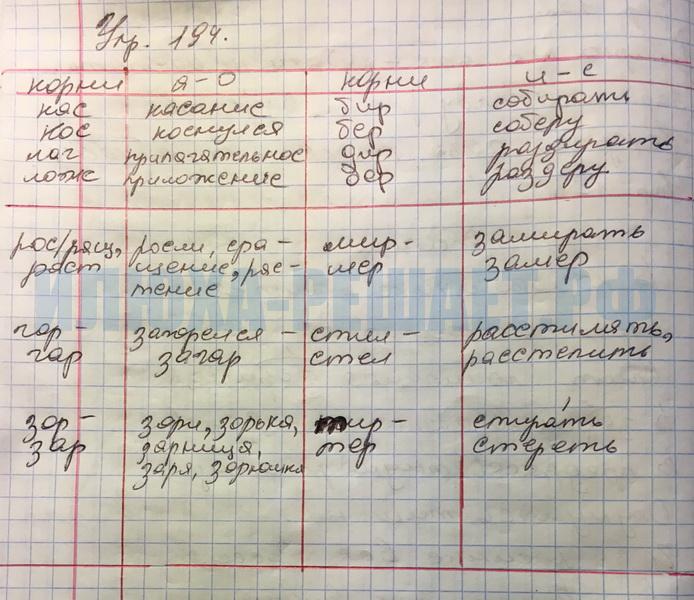 Упр. 194.
корни а-о корни и-е
кас касание бир собирать
кос коснулся бер соберу
лаг прилагательное дир раздирать
лож приложение бер раздеру
рос/ращ, росли, сра- мир- замирать
раст щение, рас- мер замер
тение
гор- загорелся - стил- расстилать,
гар загар стел расстелить
зор- зори, зорька, тир- стира́ть
зар зарница, тер стереть
заря, зорюшка
ИЛЮХА-РЕШАЕТ.РФ